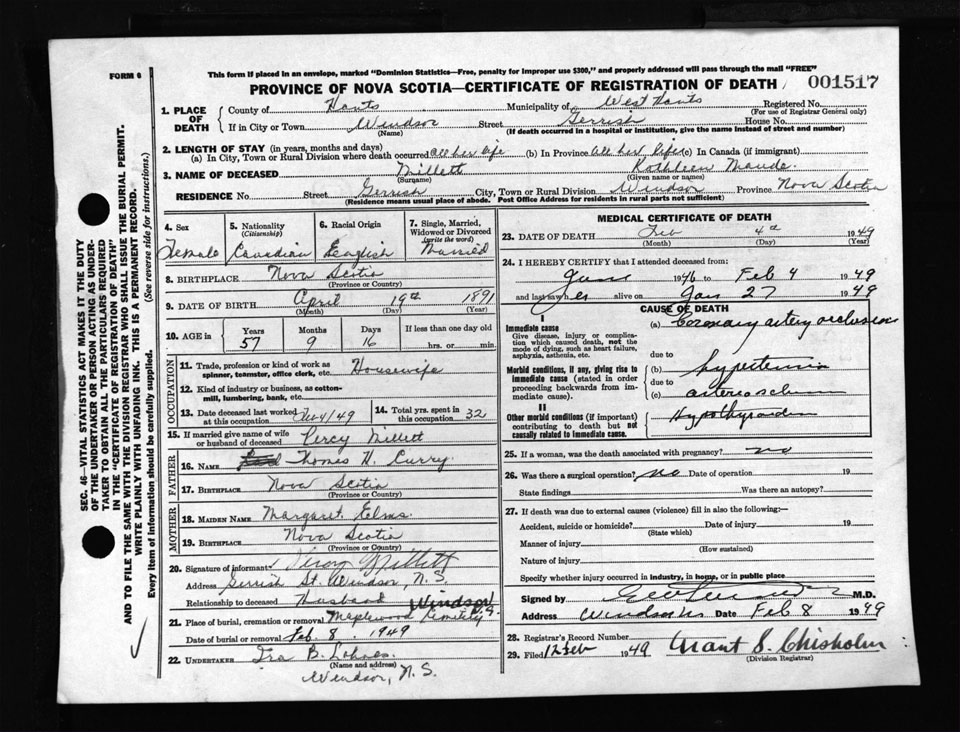 This form if placed in an envelope, marked "Dominion Statistics—Free, penalty for improper use $300," and properly addressed will pass through the mail "FREE"
FORM 6
PROVINCE OF NOVA SCOTIA—CERTIFICATE OF REGISTRATION OF DEATH
001517
1. PLACE OF DEATH
County of Hants Municipality of West Hants Registered No.
(For use of Registrar General only)
If in City or Town Windsor Street Gerrish House No.
(Name) (If death occurred in a hospital or institution, give the name instead of street and number)
2. LENGTH OF STAY (in years, months and days)
(a) In City, Town or Rural Division where death occurred all her life (b) In Province all her life (c) In Canada (if immigrant)
3. NAME OF DECEASED Millett Kathleen Maude
(Surname) (Given name or names)
RESIDENCE No. Street Gerrish City, Town or Rural Division Windsor Province Nova Scotia
(Residence means usual place of abode. Post Office Address for residents in rural parts not sufficient)
4. Sex
Female
5. Nationality
(Citizenship)
Canadian
6. Racial Origin
English
7. Single, Married, Widowed or Divorced
(write the word)
Married
8. BIRTHPLACE Nova Scotia
(Province or Country)
9. DATE OF BIRTH April 19th 1891
(Month) (Day) (Year)
10. AGE in Years Months Days If less than one day old
57 9 16 hrs. or min.
OCCUPATION
11. Trade, profession or kind of work as spinner, teamster, office clerk, etc. Housewife
12. Kind of industry or business, as cotton-mill, lumbering, bank, etc.
13. Date deceased last worked at this occupation Feb 4/49
14. Total yrs. spent in this occupation 32
15. If married give name of wife or husband of deceased Percy Millett
FATHER
16. Name Thomas H. Curry
17. Birthplace Nova Scotia
(Province or Country)
MOTHER
18. Maiden Name Margaret Elms
19. Birthplace Nova Scotia
(Province or Country)
20. Signature of informant Millett
Address Gerrish St. Windsor, N.S.
Relationship to deceased Husband
21. Place of burial, cremation or removal Maplewood Cemetery Windsor N.S.
Date of burial or removal Feb. 8. 1949
22. UNDERTAKER Ira B. Lohnes
(Name and address)
Windsor, N.S.
MEDICAL CERTIFICATE OF DEATH
23. DATE OF DEATH Feb 4th 1949
(Month) (Day) (Year)
24. I HEREBY CERTIFY that I attended deceased from:
June 1946 to Feb 4 1949
and last saw her alive on Jan 27 1949
CAUSE OF DEATH
I
Immediate cause
Give disease, injury or complication which caused death, not the mode of dying, such as heart failure, asphyxia, asthenia, etc.
(a) Coronary artery occlusion
due to
Morbid conditions, if any, giving rise to immediate cause (stated in order proceeding backwards from immediate cause).
(b)
due to
(c)
II
Other morbid conditions (if important) contributing to death but not causally related to immediate cause.
25. If a woman, was the death associated with pregnancy? no
26. Was there a surgical operation? no Date of operation 19
State findings Was there an autopsy?
27. If death was due to external causes (violence) fill in also the following:—
Accident, suicide or homicide? Date of injury 19
(State which)
Manner of injury
(How sustained)
Nature of injury
Specify whether injury occurred in industry, in home, or in public place
Signed by M.D.
Address Windsor NS Date Feb 8 1949
28. Registrar's Record Number
29. Filed 12 Feb 1949 Grant S. Chisholm
(Division Registrar)
SEC. 46—VITAL STATISTICS ACT MAKES IT THE DUTY
OF THE UNDERTAKER OR PERSON ACTING AS UNDER-
TAKER TO OBTAIN ALL THE PARTICULARS REQUIRED
IN THE "CERTIFICATE OF REGISTRATION OF DEATH"
AND TO FILE THE SAME WITH THE DIVISION REGISTRAR WHO SHALL ISSUE THE BURIAL PERMIT.
WRITE PLAINLY WITH UNFADING INK. THIS IS A PERMANENT RECORD.
Every item of information should be carefully supplied. (See reverse side for instructions.)